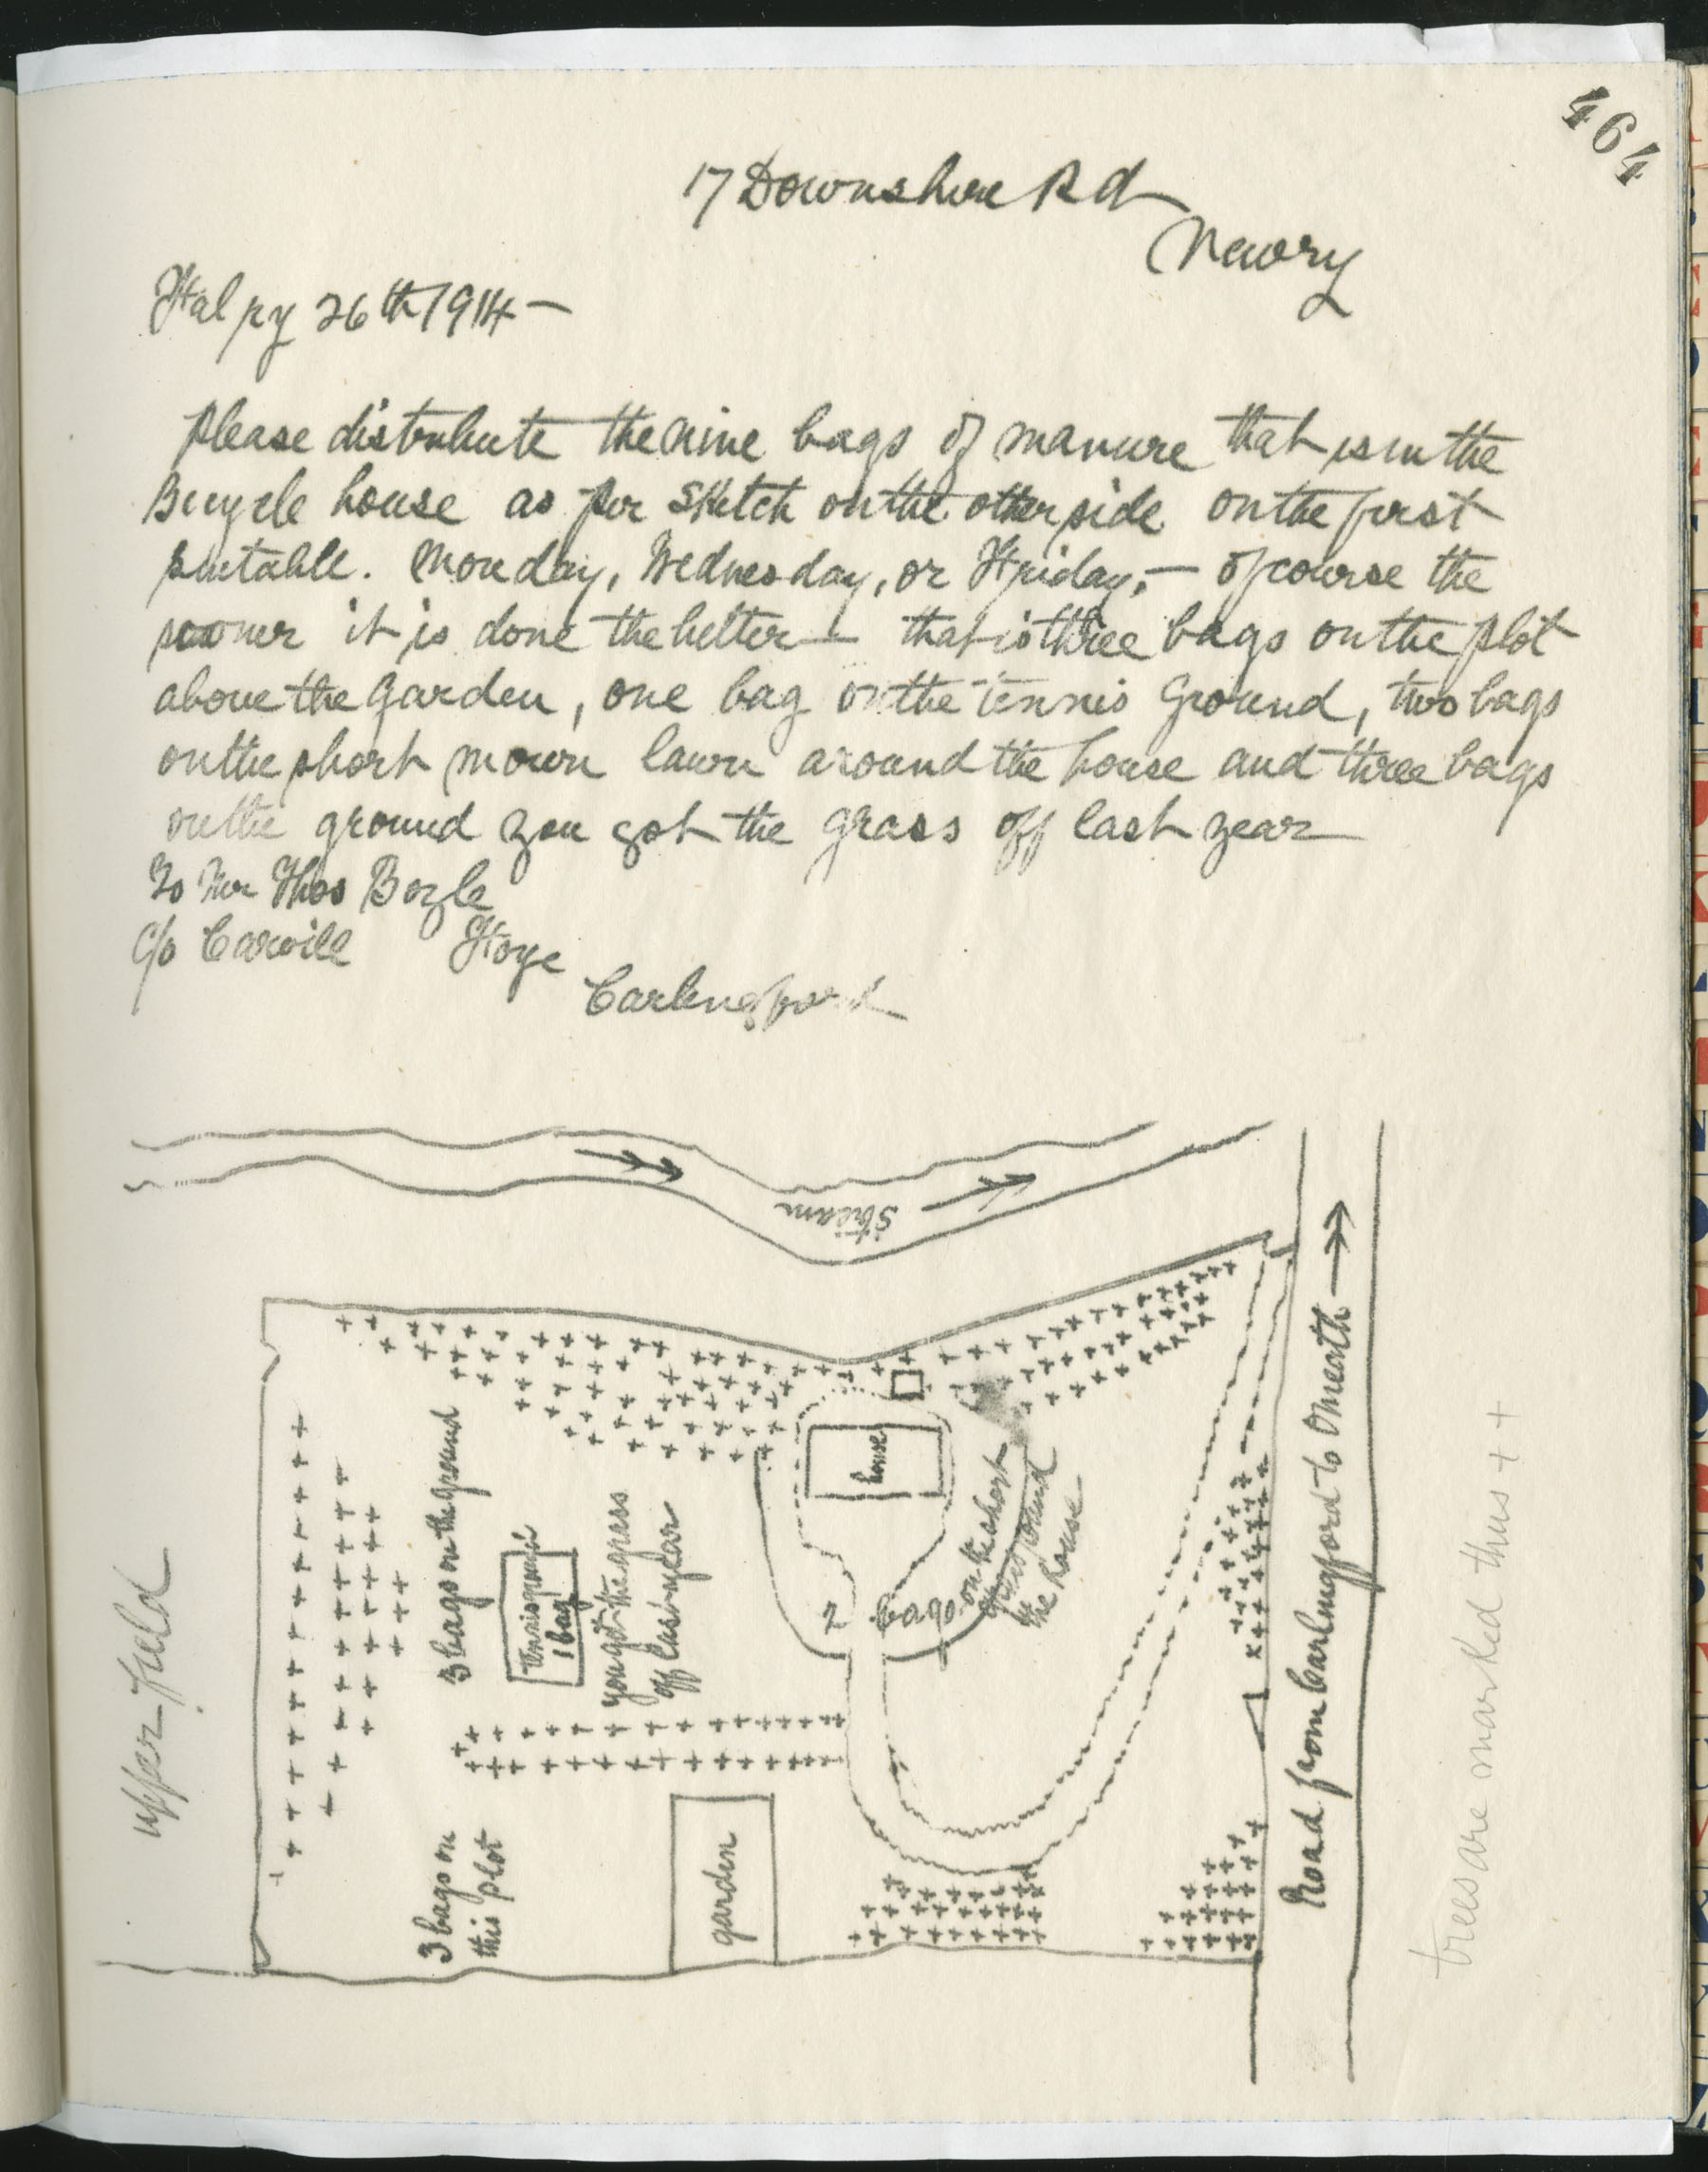 464
17 Downshire Rd
Newry
26th 1914 —
Please distribute the nine bags of manure that is in the
Bicycle house as per sketch on the other side on the first
suitable. Monday, Wednesday, or Friday, — of course the
sooner it is done the better — that is three bags on the plot
above the garden, one bag on the tennis ground, two bags
on the short mown lawn around the house and three bags
on the ground you got the grass off last year
To Mr Thos Boyle
c/o Carvill
Carlingford
Stream
Upper Field
3 bags on the ground
Tennis ground
1 bag
you got the grass
off last year
house
2 bags on the short
round
the house
3 bags on
this plot
garden
Road from Carlingford to Omeath
trees are marked thus + +